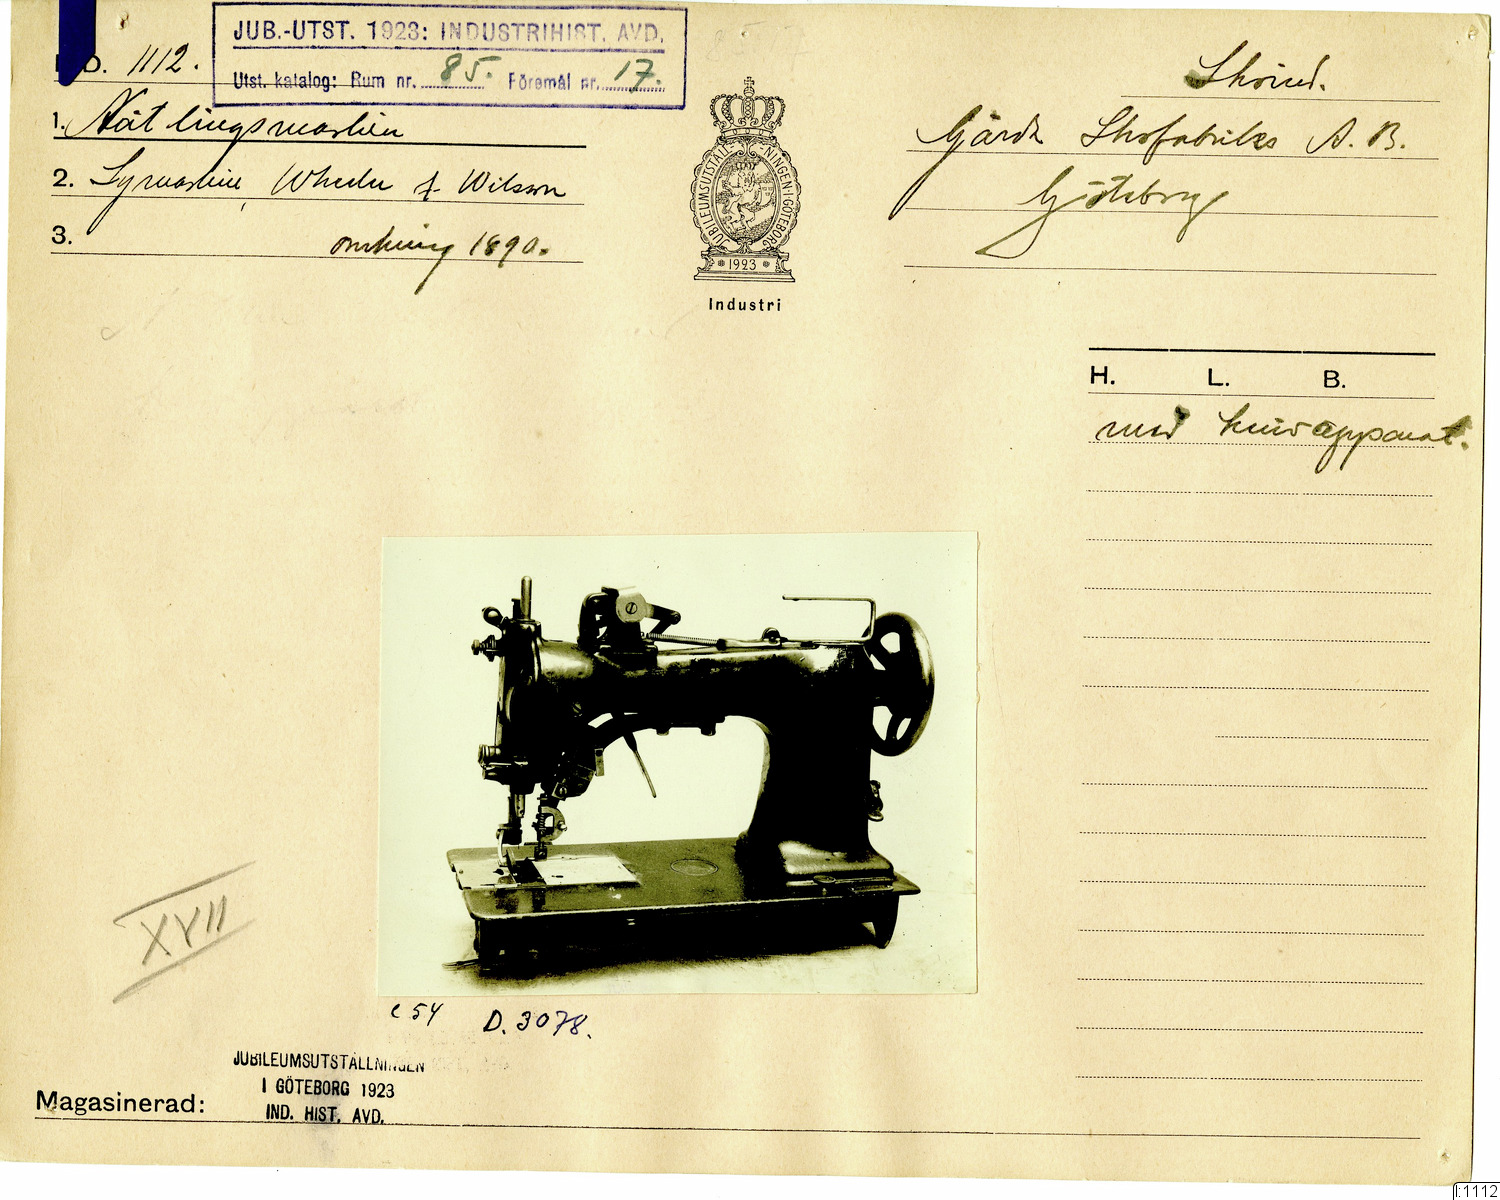 JUB.-UTST. 1923: INDUSTRIHIST. AVD.
Utst. katalog: Rum nr. 85. Föremål nr. 17.
D. 1112.
1. Nåtlingsmaskin
2. Symaskin, Wheeler & Wilson
3. omkring 1890.
JUBILEUMSUTSTÄLL-NINGEN·I·GÖTEBORG
* 1923 *
Industri
Skoind.
Gårda Skofabriks A. B.
Göteborg
H. L. B.
med knivapparat.
XVII
c 54 D. 3078.
JUBILEUMSUTSTÄLLNINGEN
I GÖTEBORG 1923
IND. HIST. AVD.
Magasinerad:
I:1112